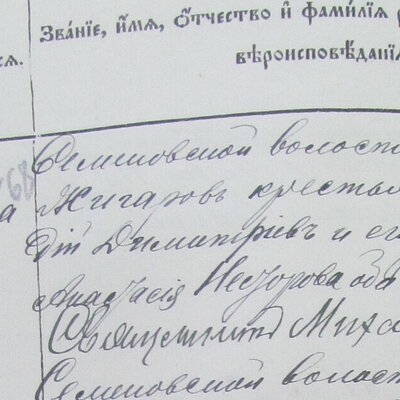 Зва́нїе, и҆́мя, ѻ҆́тчество и҆ фами́лїя р
вѣроисповѣ́данїя
ся.
68
Семеновской волост
а Жигаровъ крестья
Димитріевъ и ег
Анастасія Ѳедорова оба
Священникъ Миха
Семеновской волост